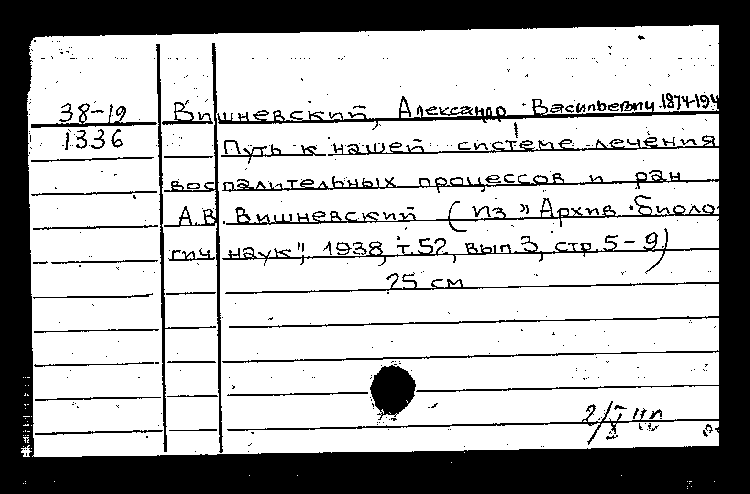 38-19 Вишневский, Александр Васильевич 1874-194
1336 Путь к нашей системе лечения
воспалительных процессов и ран
А.В. Вишневский (Из "Архив биоло
гич наук", 1938, т.52, вып.3, стр.5-9)
25 см